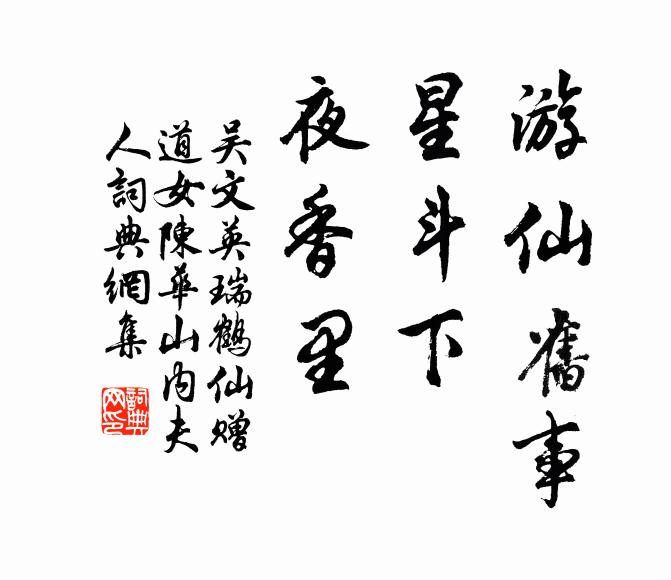 游仙舊事
星斗下
夜香里
吴文英瑞鶴仙赠
道女陳華山内夫
人詞典網集
詞典网印